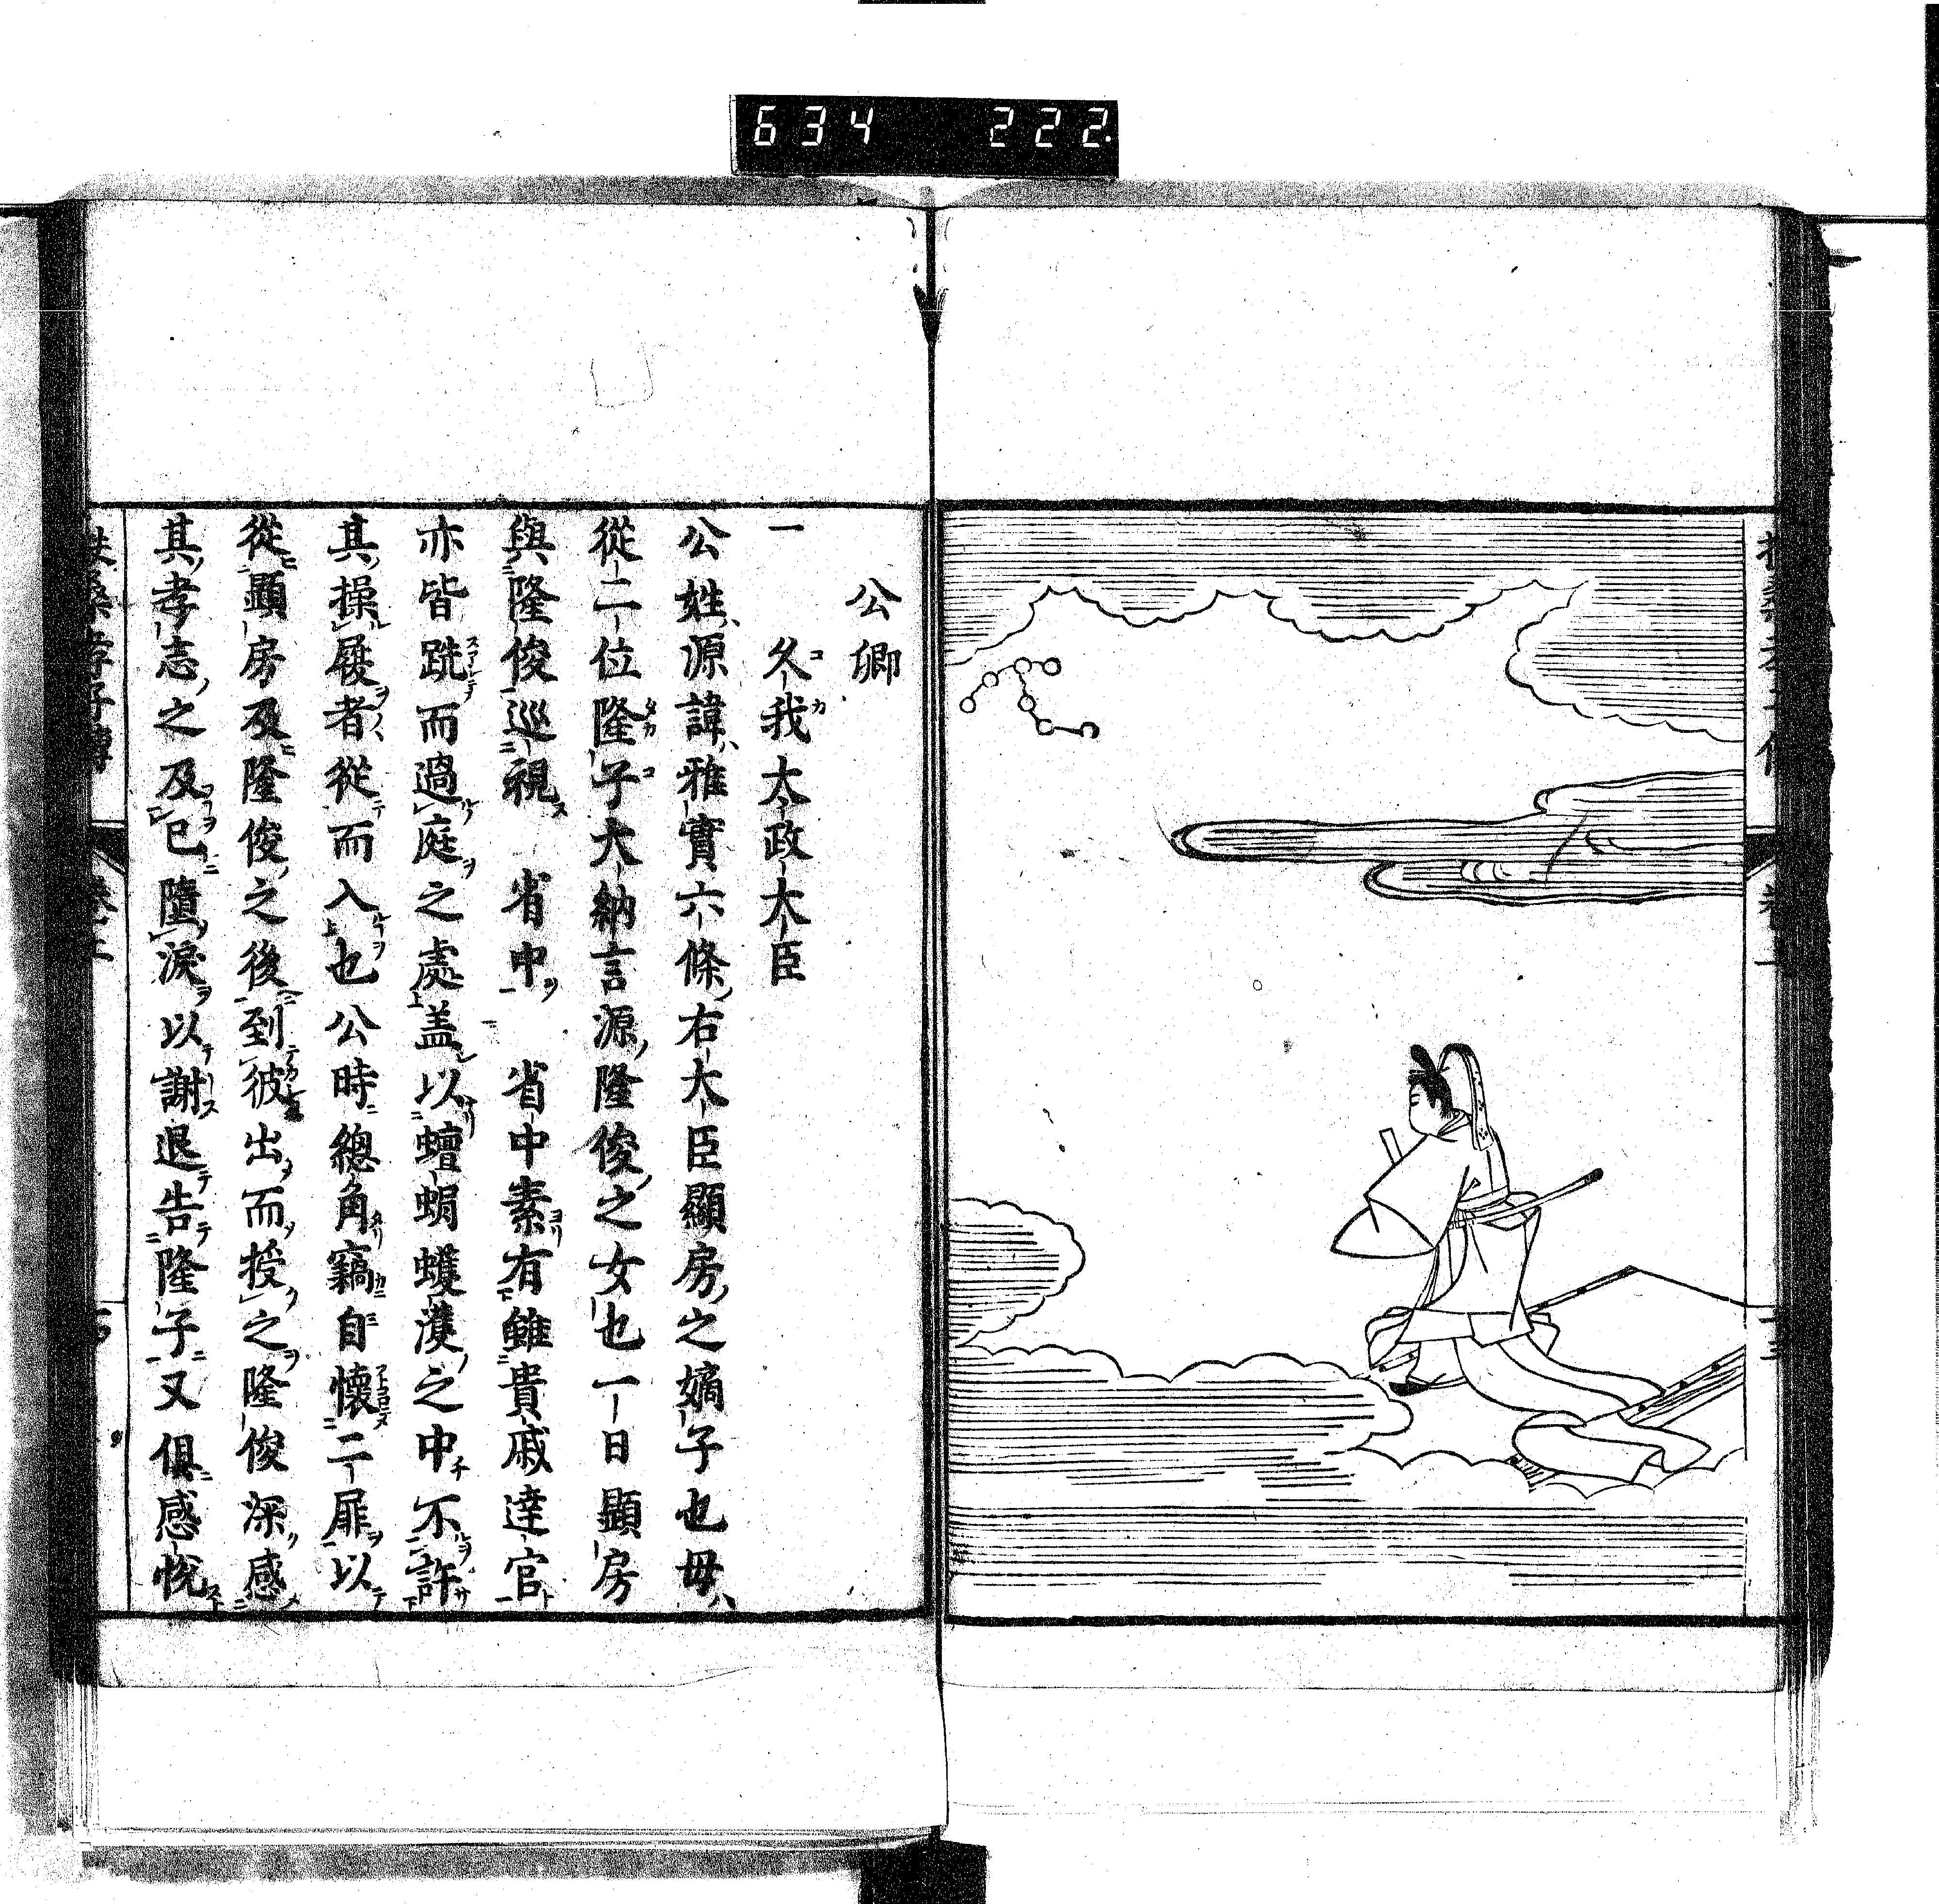 634 222
公卿
一 久我太政大臣
公姓源諱雅實六條右大臣顯房之嫡子也母
從二位隆子大納言源隆俊之女也一日顯房
與隆俊巡視 省中 省中素有雖貴戚達官
亦皆跣而過庭之處盖以蟺蜎蠖濩之中不許
其操履者從而入也公時總角竊自懷二屝以
從顯房及隆俊之後到彼出而授之隆俊深感
其孝志之及已隨淚以謝退告隆子又俱感悅